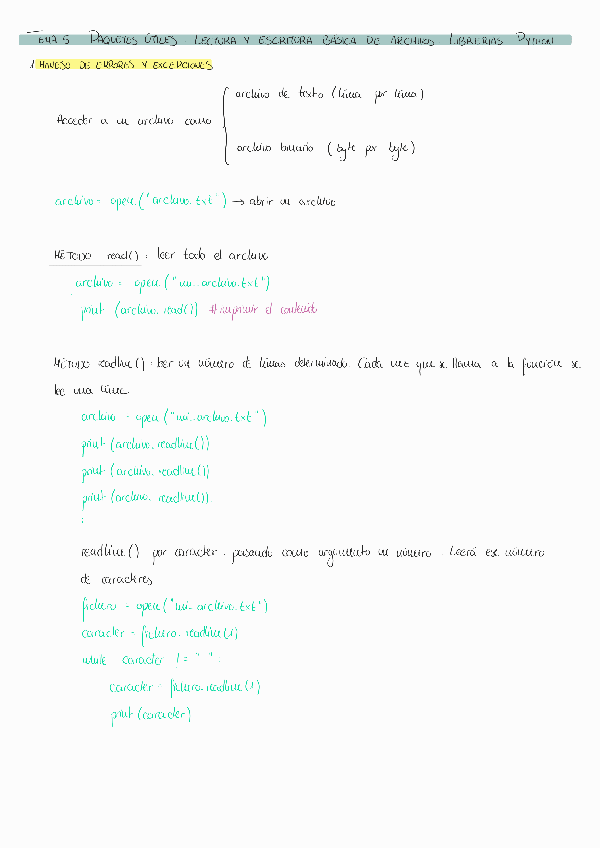 TEMA 5 PAQUETES ÚTILES LECTURA Y ESCRITURA BÁSICA DE ARCHIVOS. LIBRERÍAS PYTHON
1. MANEJO DE ERRORES Y EXCEPCIONES
archivo de texto (línea por línea)
Acceder a un archivo como
archivo binario (byte por byte)
archivo = open("archivo.txt") → abrir un archivo
MÉTODO read(): leer todo el archivo
archivo = open("mi-archivo.txt")
print (archivo.read()) #imprimir el contenido
MÉTODO readline(): leer un número de líneas determinado. Cada vez que se llama a la función se
lee una línea.
archivo = open("mi-archivo.txt")
print (archivo.readline())
print (archivo.readline())
print (archivo.readline())
:
readline() por caracter: pasando como argumento un número. Leerá ese número
de caracteres
fichero = open("mi-archivo.txt")
caracter = fichero.readline(1)
while caracter != " ":
caracter = fichero.readline(1)
print (caracter)